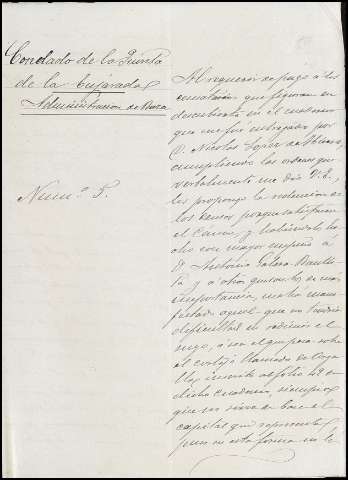 Condado de la Quinta
de la Enjarada
Administracion de Baza
Num.º 5.
Al requerir de pago á los
censatarios que figuran en
descubierto en el cuaderno
que me fué entregado por
D. Nicolas Lopez de
cumpliendo las ordenes que
verbalmente me dio V.E.,
les propongo la redencion de
los censos porque satisfacen
el Cánon, y habiendolo he
cho con mayor empeño á
D. Antonio Bautis
ta y á otros que son los de más
importancia, me há mani
festado aquel que no tendrá
dificultad en redimir el
suyo, ó sea el que pesa sobre
el cortijo llamado de
inscrito al folio 42 en
dicho cuaderno, siempre
que nos sirva de base el
capital que representa
pues en esta forma en le